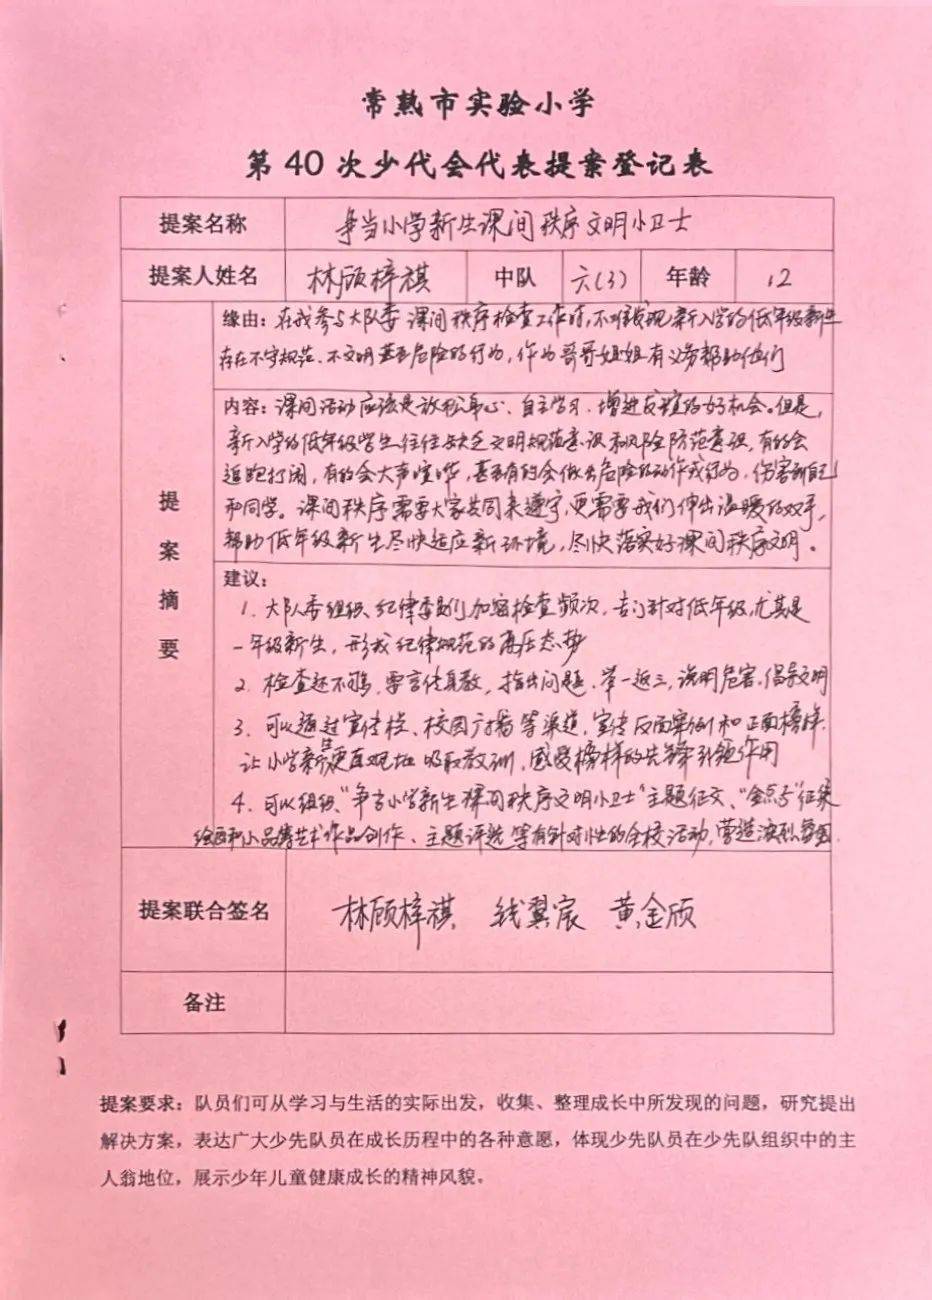 常熟市实验小学
第 40 次少代会代表提案登记表
提案名称 争当小学新生课间秩序文明小卫士
提案人姓名 林顾梓祺 中队 六(3) 年龄 12
缘由：在我参与大队委课间秩序检查工作时，不难发现新入学的低年级新生
存在不守规范、不文明甚至危险的行为，作为哥哥姐姐有义务帮助他们
提案摘要
内容：课间活动应该是放松身心、自主学习、增进友谊的好机会。但是，
新入学的低年级学生往往缺乏文明规范意识和风险防范意识，有的会
追跑打闹，有的会大声喧哗，甚至有的会做出危险的动作或行为，伤害到自己
和同学。课间秩序需要大家共同来遵守，更需要我们伸出温暖的双手，
帮助低年级新生尽快适应新环境，尽快落实好课间秩序文明。
建议：
1. 大队委组织纪律委员们加密检查频次，专门针对低年级，尤其是
一年级新生，形成纪律规范的高压态势
2. 检查还不够，要言传身教，指出问题、举一返三，说明危害，倡导文明
3. 可以通过宣传栏、校园广播等渠道，宣传反面案例和正面榜样，
让小学新生更直观地吸取教训，感受榜样的先锋引领作用
4. 可以组织“争当小学新生课间秩序文明小卫士”主题征文、“金点子”征集
绘画和小品等艺术作品创作、主题评选等有针对性的全校活动，营造浓烈氛围.
提案联合签名 林顾梓祺 钱翼宸 黄金颀
备注
提案要求：队员们可从学习与生活的实际出发，收集、整理成长中所发现的问题，研究提出
解决方案，表达广大少先队员在成长历程中的各种意愿，体现少先队员在少先队组织中的主
人翁地位，展示少年儿童健康成长的精神风貌。